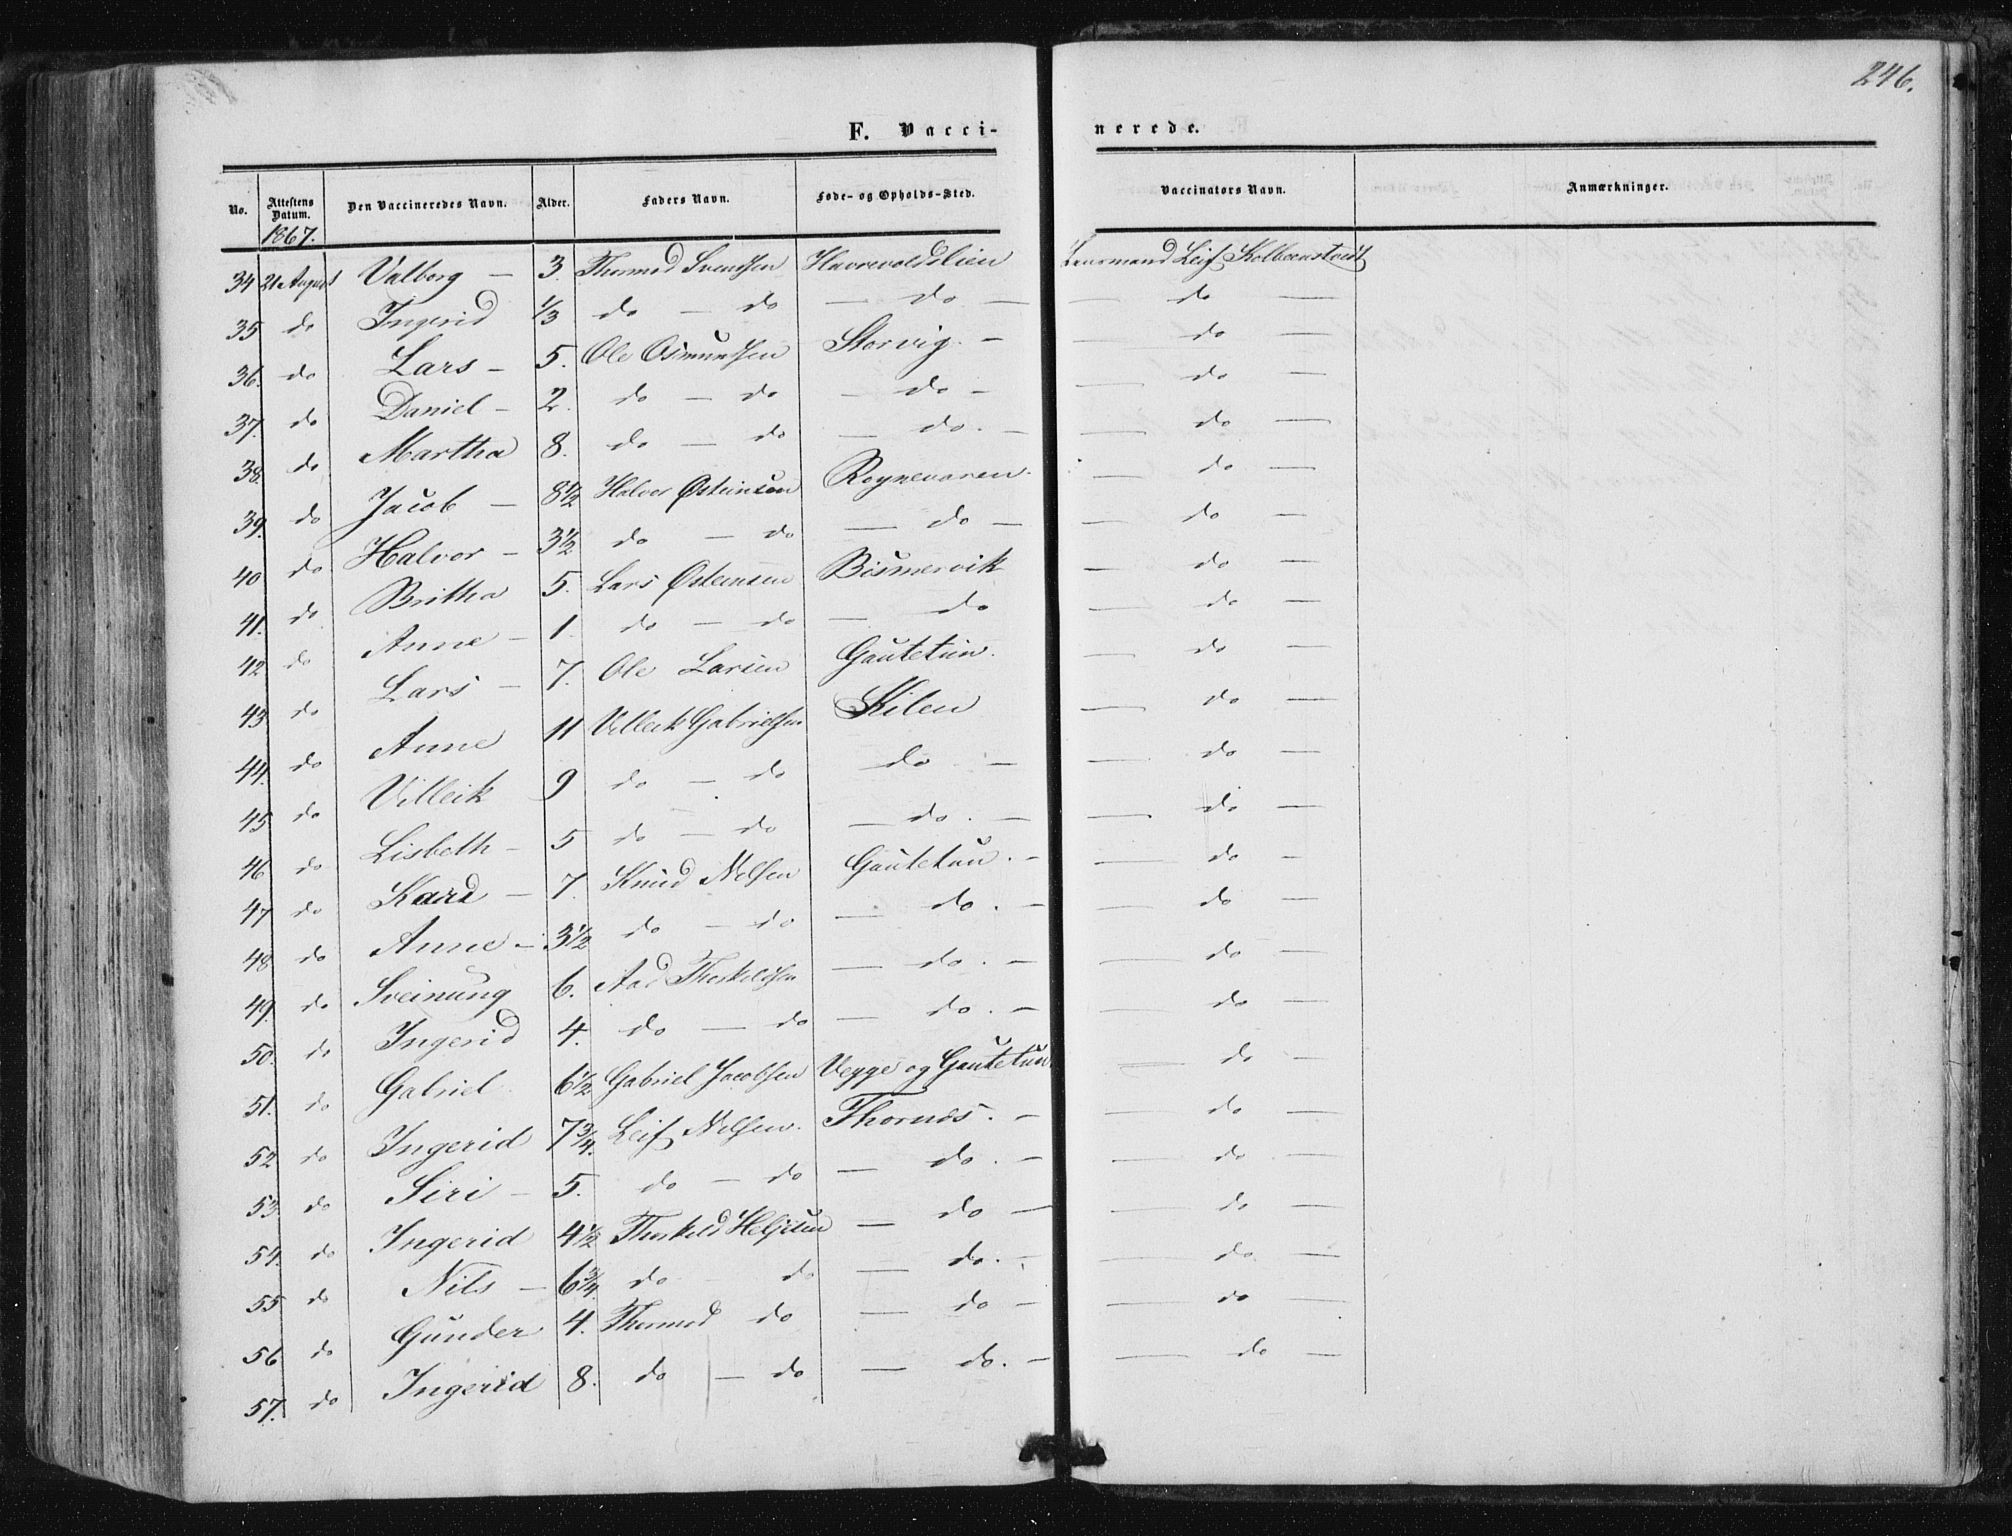 246.
F. Vaccinerede.
No. | Attestens Datum. | Den Vaccineredes Navn. | Alder. | Faders Navn. | Føde- og Opholds-Sted. | Vaccinators Navn. | Anmærkninger.
1867.
34 21 August Valborg — 3. Thormod Svendsen Havrevoldslien Lensmand Leif Kolbeenstvedt
35 do Ingerid 1/3 do — do — do — — do —
36. do Lars — 5. Ole Osmundsen Storvig. — — do —
37. do Daniel — 2. do — do — do — — do —
38. do Martha 8. do — do — do. — — do —
39. do Jacob — 8 1/2 Halvor Østeinsen Rognevaren. — do —
40 do Halvor — 3 1/2 do — do — do — — do —
41. do Britha 5. Lars Østeinsen Bismervik — do —
42 do Anne — 1. do — do — do — do —
43. do Lars — 7. Ole Larsen Gautetun. — do —
44. do Anne 11 Villeik Gabrielsen Kilen — do —
45 do Villeik 9 do — do do — — do —
46 do Lisbeth — 5 do — do — do. — — do —
47 do Kari — 7. Knud Nilsen Gautetun. — — do —
48 do Anne — 3 1/2 do — do — do. — — do —
49. do Sveinung 6. Aad Thorkildsen — do. — — do —
50. do Ingerid 4. do — do — do. — — do —
51. do Gabriel 6 1/2 Gabriel Jacobsen Vegge og Gautetun. — do —
52 do Ingerid 7 3/4. Leif Nilsen. Thornes. — — do —
53. do Siri — 5. do — do — do. — — do —
54. do Ingerid 4 1/2 Thorkild Heljesen — do — — do —
55 do Nils — 6 3/4. do — do — do. — — do. —
56 do Gunder 4. Thormod do — do — — do —
57. do Ingerid 8. do — do — do. — — do —